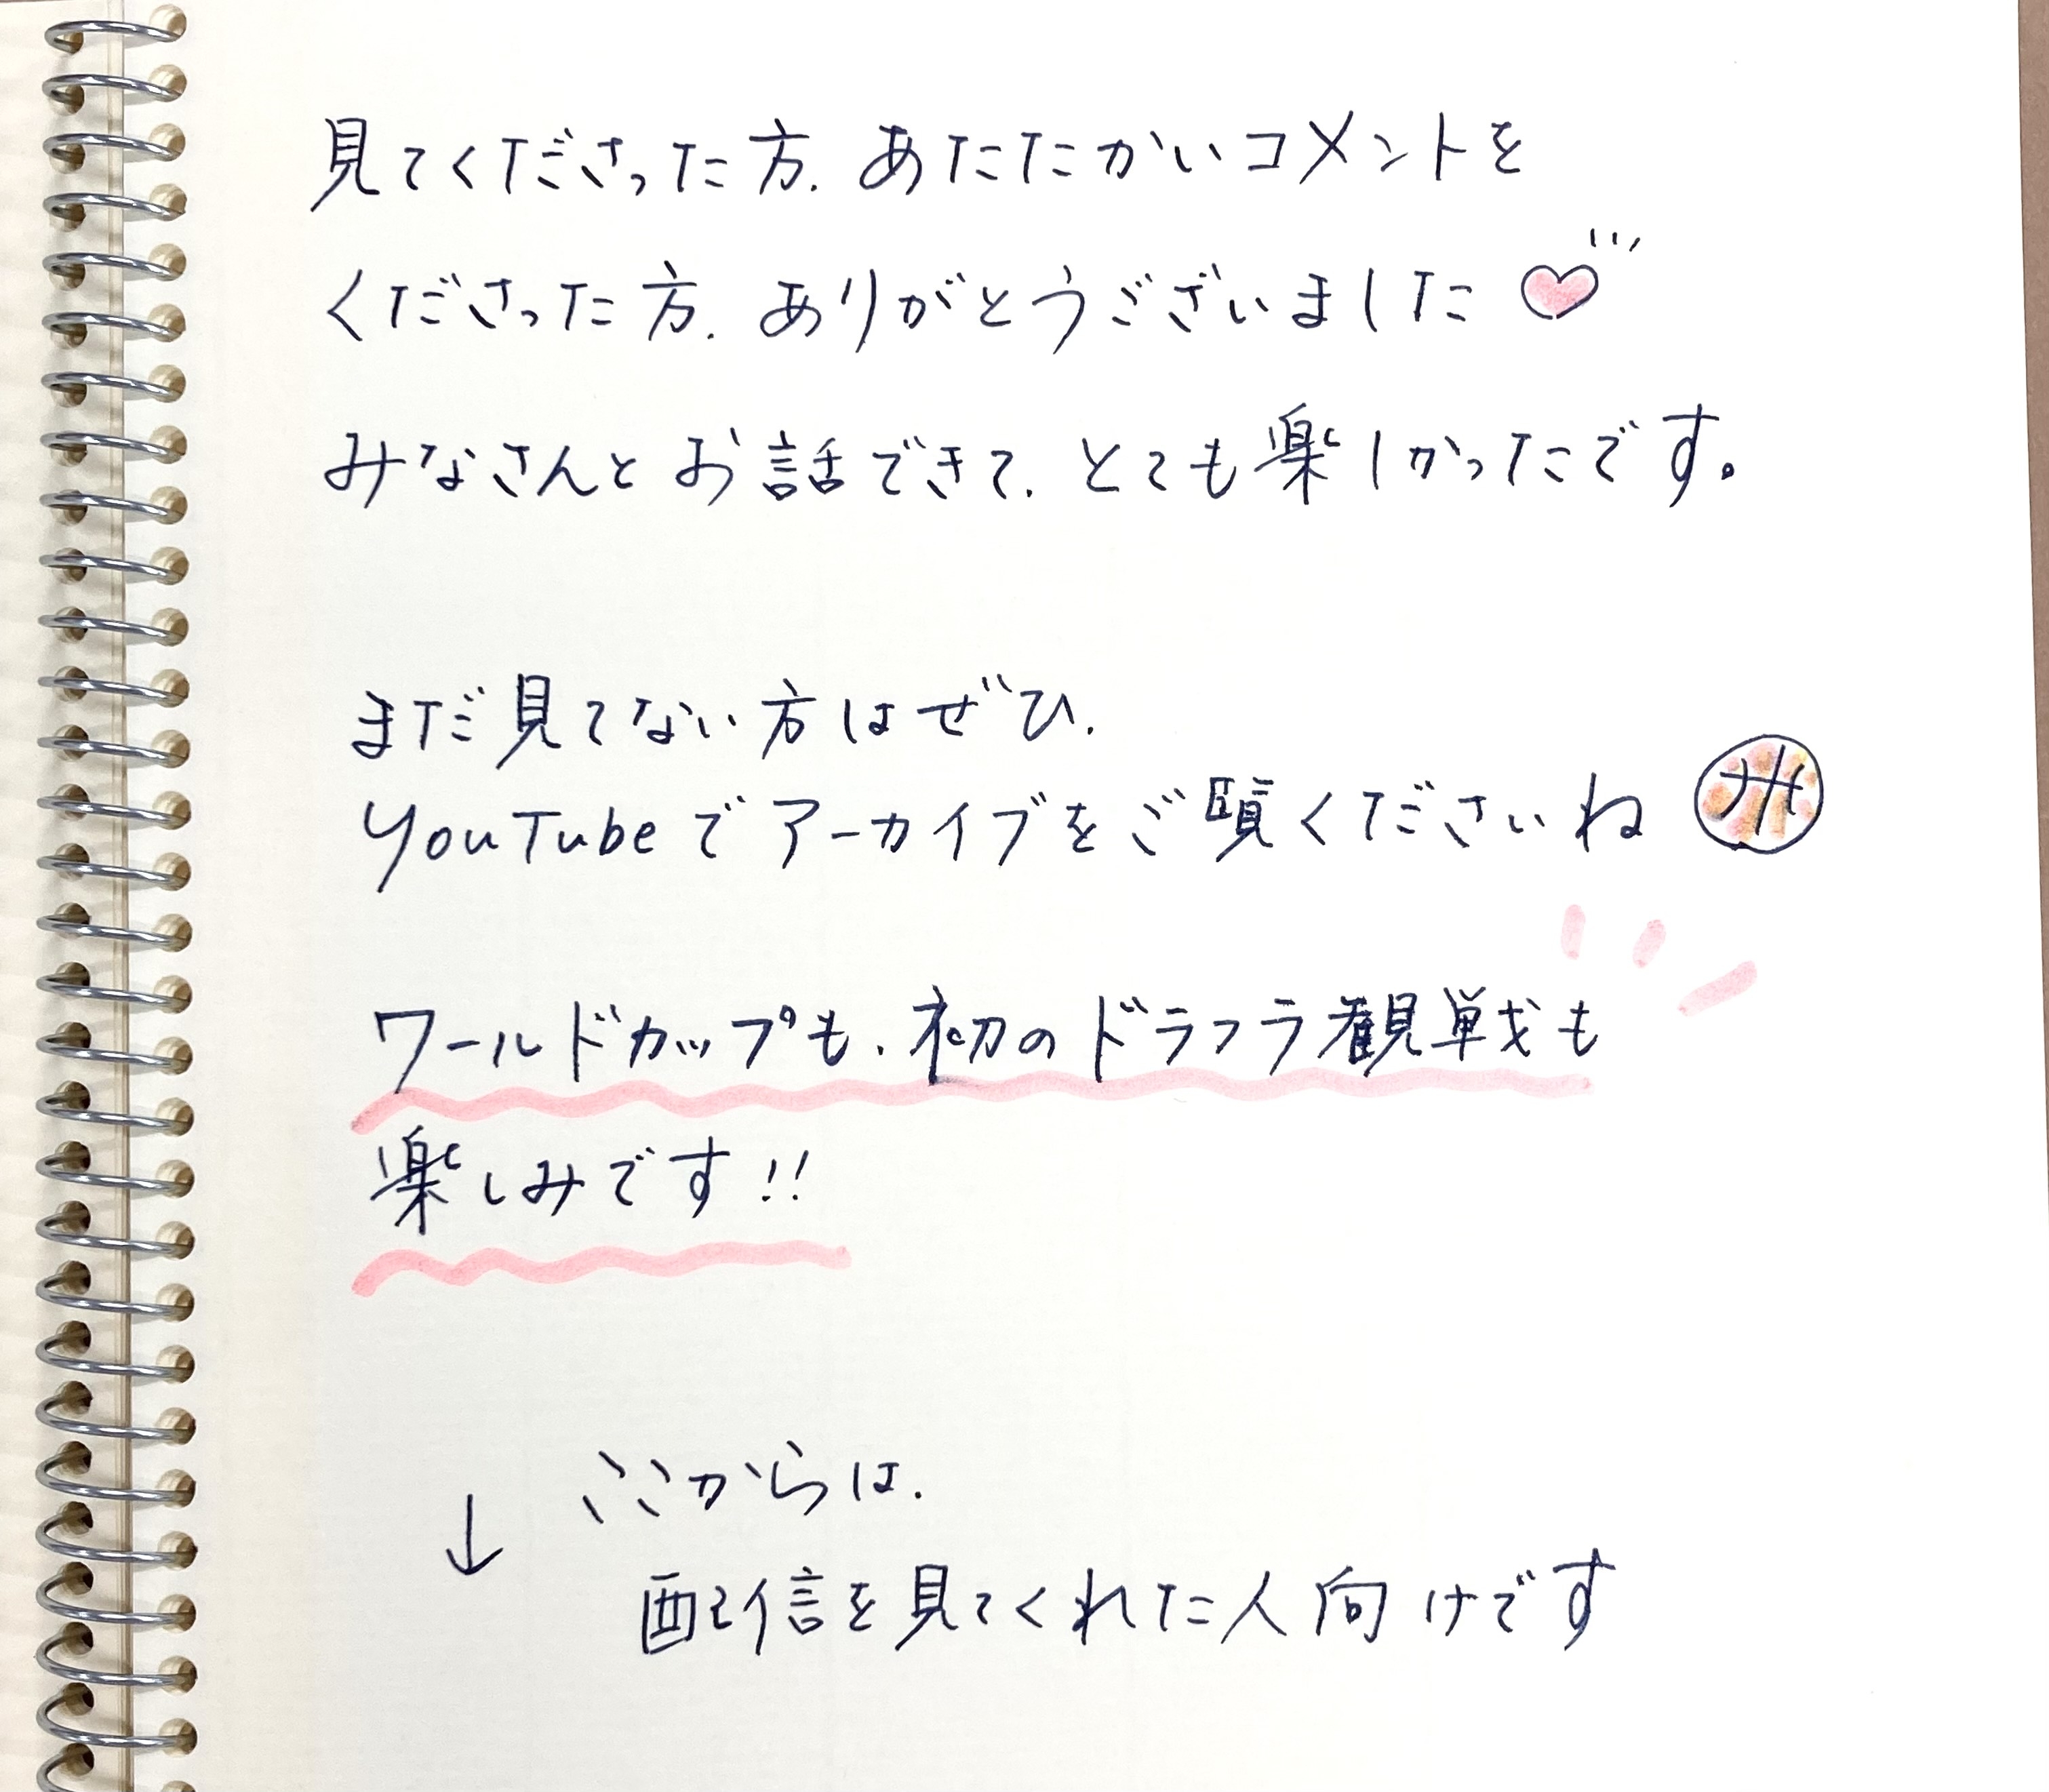 見てくださった方、あたたかいコメントを
くださった方、ありがとうございました
みなさんとお話できて、とても楽しかったです。
まだ見てない方はぜひ、
YouTubeでアーカイブをご覧くださいね
ワールドカップも、初のドラフラ観戦も
楽しみです!!
↓ ここからは、
配信を見てくれた人向けです